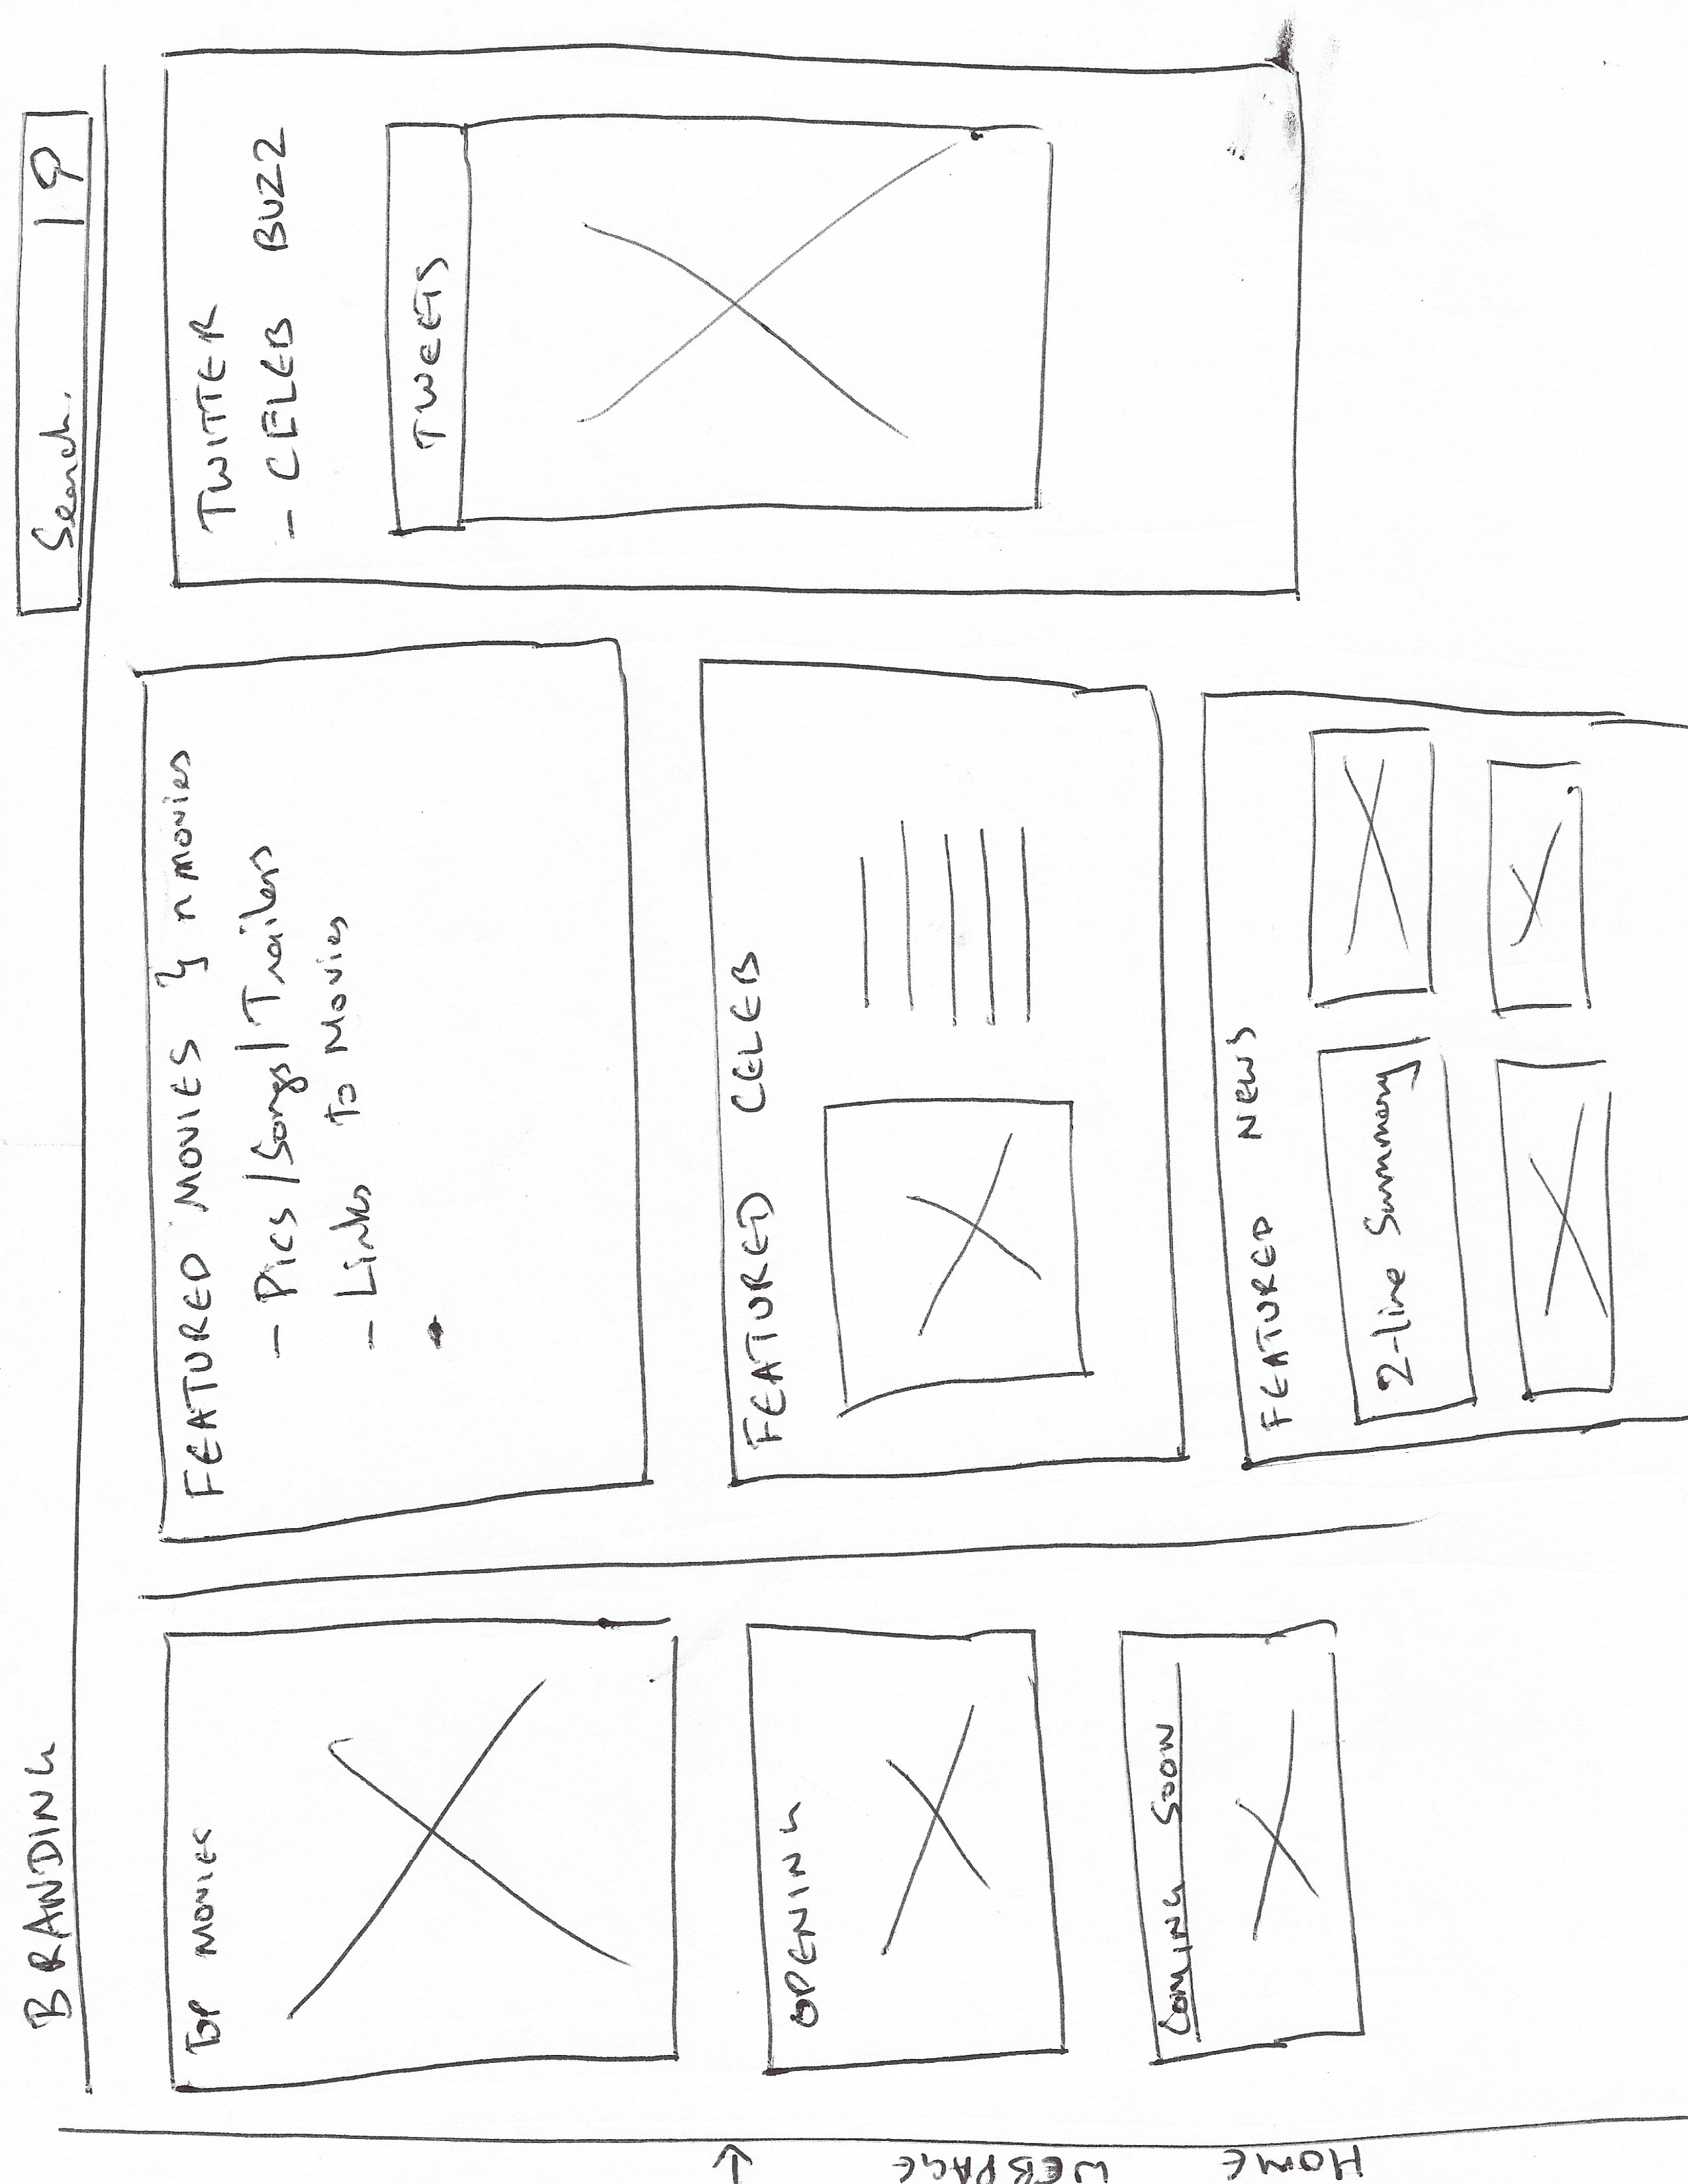 BRANDING
Search.
TOP MOVIES
OPENING
COMING SOON
FEATURED MOVIES } n movies
- Pics / Songs / Trailers
- Links to Movies
FEATURED CELEB
FEATURED NEWS
2-line Summary
TWITTER
- CELEB BUZZ
TWEETS
HOME WEBPAGE →